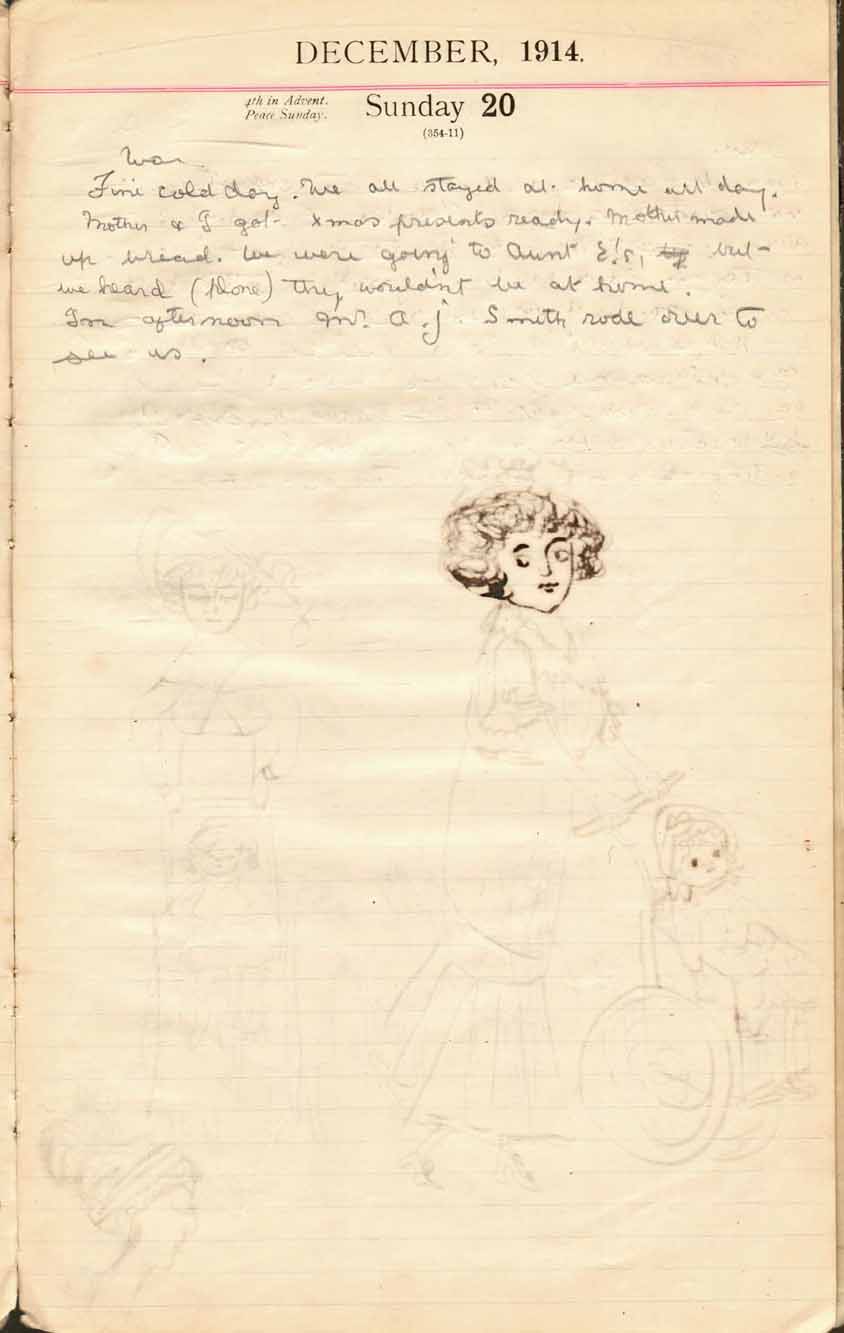 DECEMBER, 1914.
4th in Advent.
Peace Sunday.
Sunday 20
(354-11)
War.
Fine cold day. We all stayed at home all day.
Mother & I got Xmas presents ready. Mother made
up bread. We were going to Aunt E's, but
we heard (phone) they wouldn't be at home.
In afternoon Mr. A.J. Smith rode over to
see us.